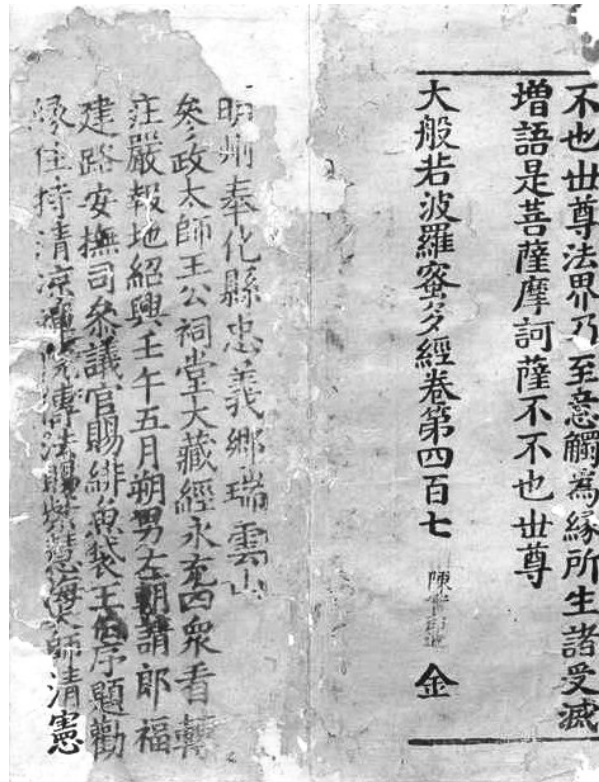 不也世尊法界乃至意觸為緣所生諸受滅
増語是菩薩摩訶薩不不也世尊
大般若波羅蜜多經卷第四百七 陳 金
明州奉化縣忠義鄉瑞雲山
叅政太師王公祠堂大藏經永充四衆看轉
莊嚴報地紹興壬午五月朔男左朝請郎福
建路安撫司叅議官賜緋魚袋王伯序題勸
緣住持清凉禪院傳法賜紫慧海大師清憲